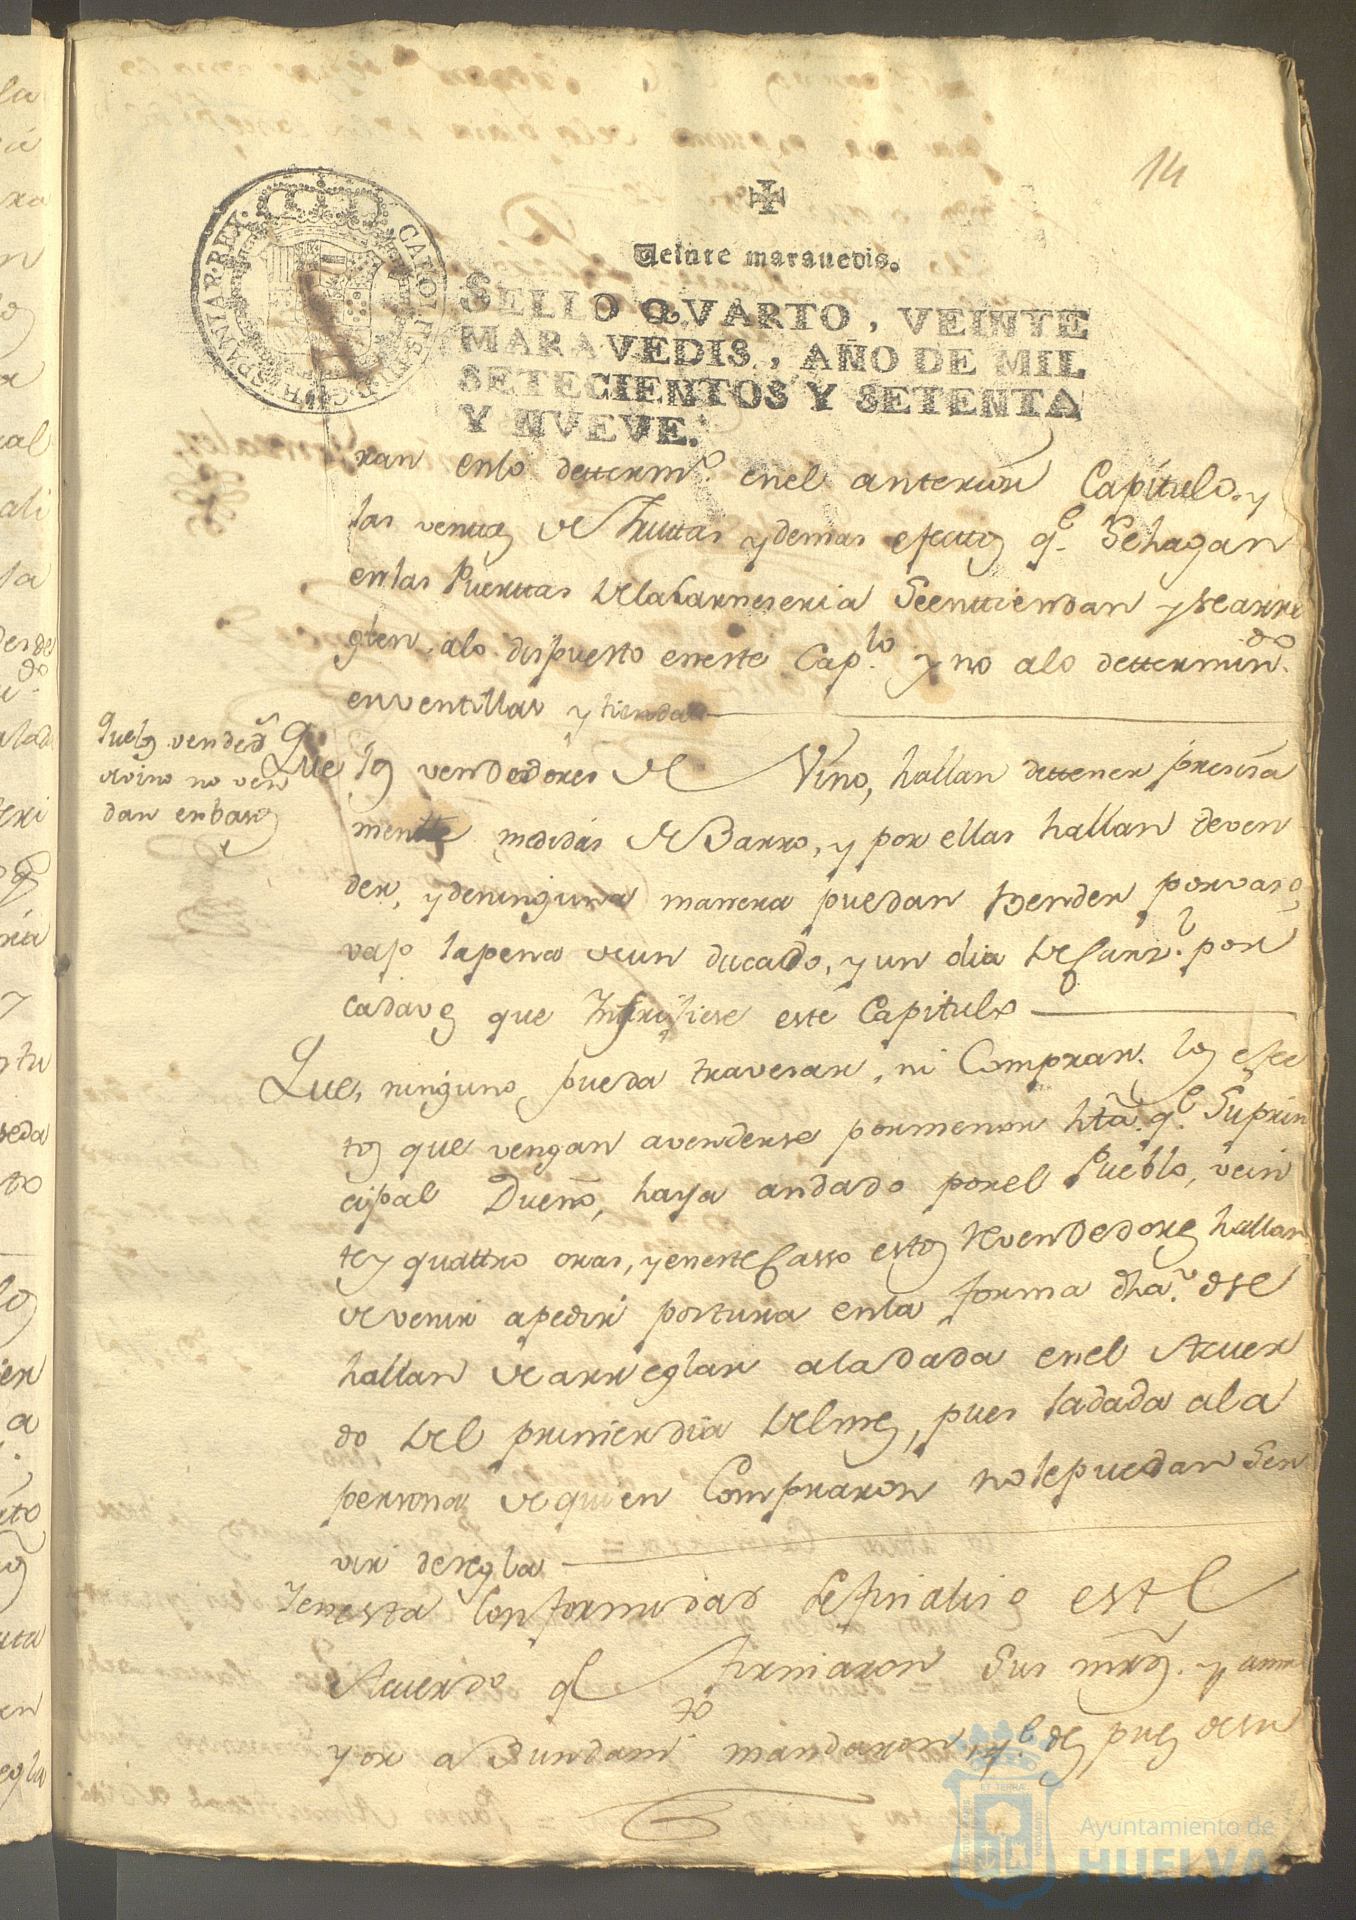 14
Veinte maravedis.
SELLO QVARTO, VEINTE
MARAVEDIS, AÑO DE MIL
SETECIENTOS Y SETENTA
Y NUEVE.
CAROL. III. D. G. HISPANIAR. REX.
ran enlo determdo. enel anterior Capítulo. y
las ventas de Frutas y demas efectos qe. Sehagan
enlas Puertas delaCarneseria Seentiendan y Searre
glen alo dispuesto eneste Caplo. y no alo dettermindo.
enventillas y tiendas
Quelos vended
devino no ven
dan enbasos
Que los vendedores de Vino, hallan dettener presisa
mentte medidas de Barro, y por ellas hallan deven
der, y deninguna manera puedan Vender porvaso,
vajo lapena deun ducado, y un dia deCarzl. por
cadaves que Infrijiese este Capitulo
Que, ninguno pueda travesar, ni Comprar. los efec
tos que vengan avenderse pormenor hta. qe. Suprin
cipal Dueño, haya andado porel Pueblo, vein
te y quattro oras, yenesteCasso estos Revendedores hallan
devenir apedir postura enla forma dha. dse
hallan dearreglar aladada enel Acuer
do del primerdia delmes, pues ladada ala
persona dequien Compraron nolepuedan Ser
vir deregla
Yenesta Conformidad Sefinaliso este
Acuerdo qe firmaron Sus mrds. y am
yor abundamto. mandaron qe. des pues desu
Ayuntamiento de
HUELVA